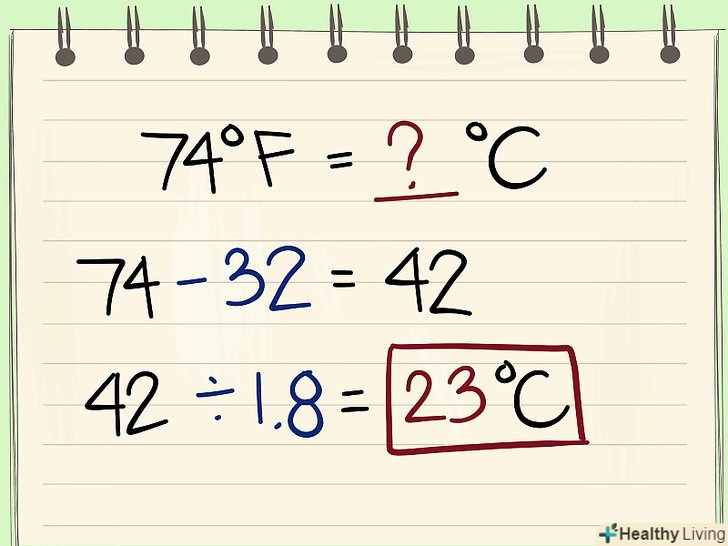 74°F = ? °C
74 - 32 = 42
42 ÷ 1.8 = 23°C
Healthy Living